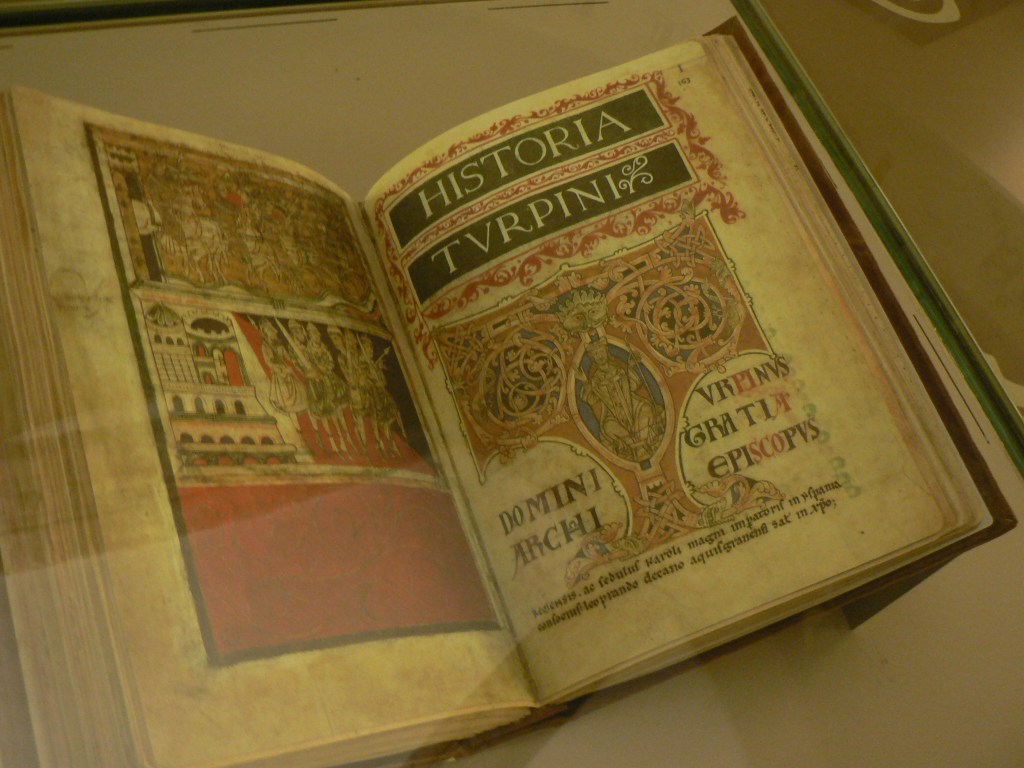 HISTORIA
TVRPINI
VRPINVS
DOMINI GRATIA
ARCHI EPISCOPVS
ac sedulus Karoli magni imparoris in yspania
consocius leoprando decano aquisgranensi sal in xpo;